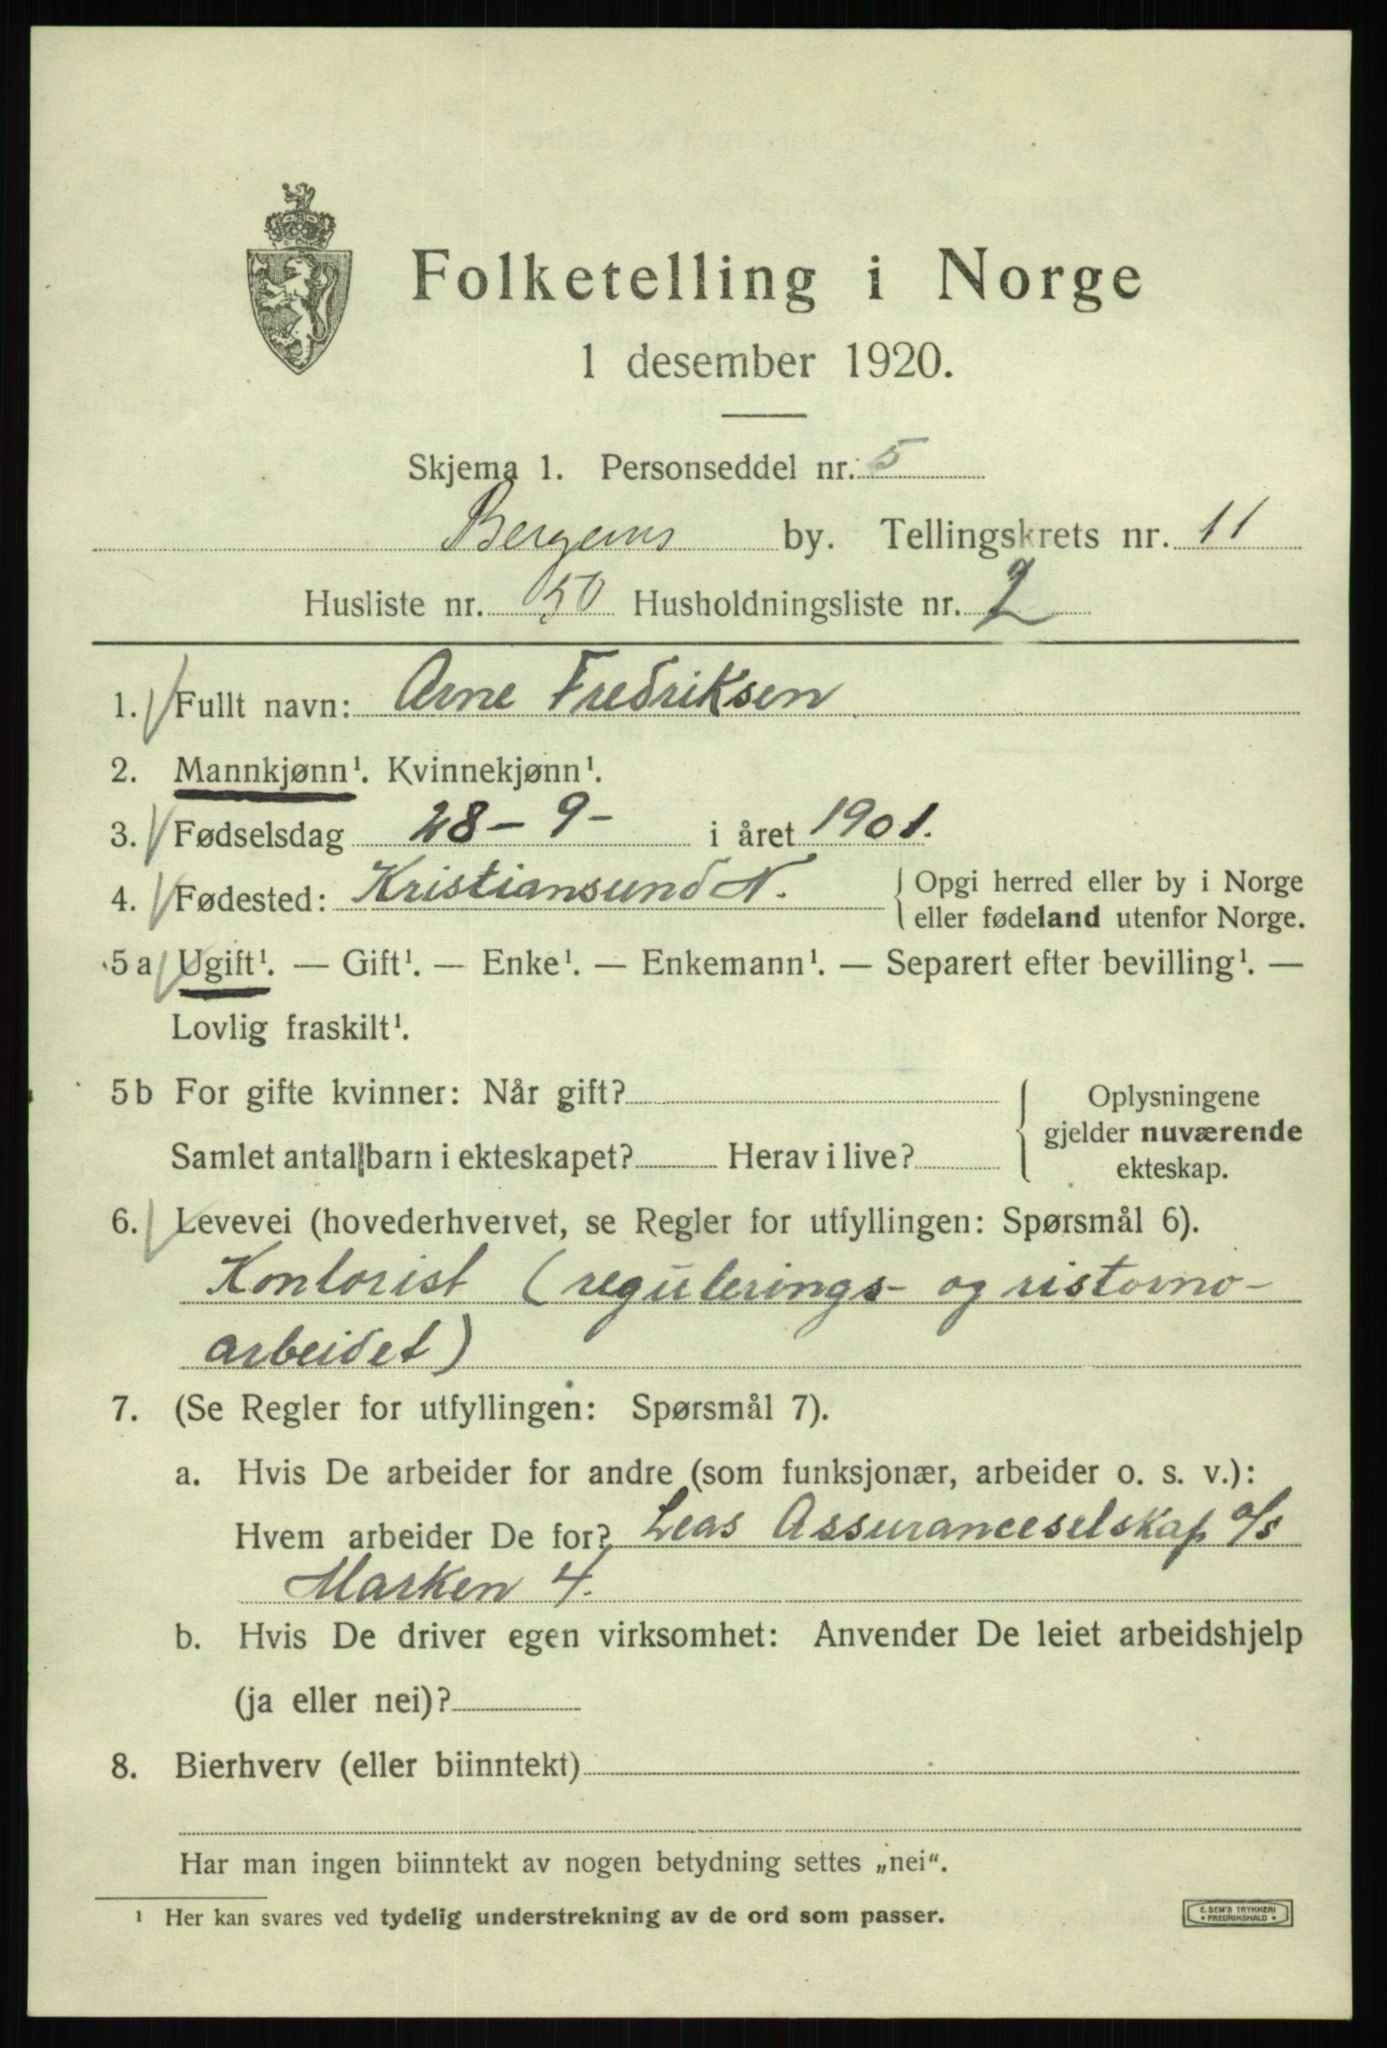 Folketelling i Norge
1 desember 1920.
Skjema 1. Personseddel nr. 5
Bergens by. Tellingskrets nr. 11
Husliste nr. 50 Husholdningsliste nr. 2
1. Fullt navn: Arne Fredriksen
2. Mannkjønn¹. Kvinnekjønn¹.
3. Fødselsdag 28 – 9 – i året 1901.
4. Fødested: Kristiansund N. { Opgi herred eller by i Norge
eller fødeland utenfor Norge.
5 a Ugift¹. — Gift¹. — Enke¹. — Enkemann¹. — Separert efter bevilling¹. —
Lovlig fraskilt¹.
5 b For gifte kvinner: Når gift?
Samlet antal barn i ekteskapet? Herav i live?
Oplysningene
gjelder nuværende
ekteskap.
6. Levevei (hovederhvervet, se Regler for utfyllingen: Spørsmål 6).
Kontorist (regulerings- og ristorno-
arbeidet)
7. (Se Regler for utfyllingen: Spørsmål 7).
a. Hvis De arbeider for andre (som funksjonær, arbeider o. s. v.):
Hvem arbeider De for? Leas Assuranceselskap a/s
Marken 4.
b. Hvis De driver egen virksomhet: Anvender De leiet arbeidshjelp
(ja eller nei)?
8. Bierhverv (eller biinntekt)
Har man ingen biinntekt av nogen betydning settes „nei“.
¹ Her kan svares ved tydelig understrekning av de ord som passer.
E. SEM'S TRYKKERI
• FREDRIKSHALD •